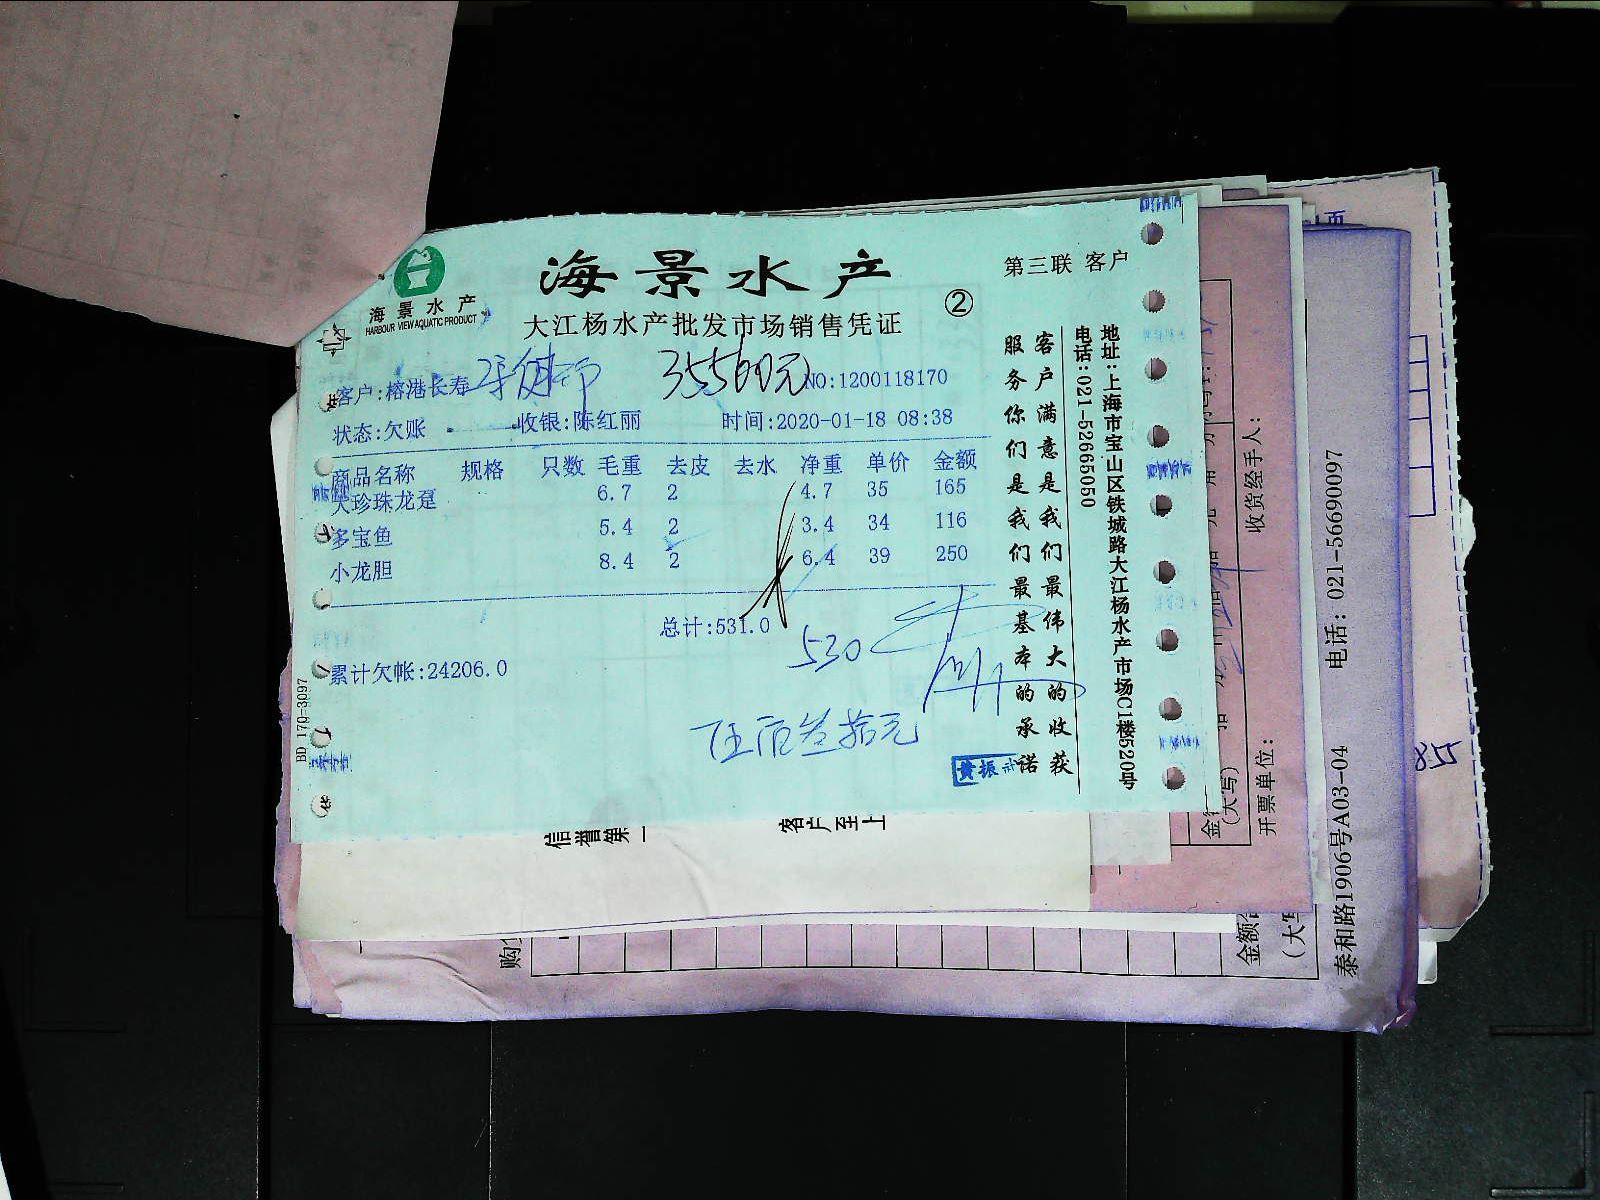 海景水产
HARBOUR VIEW AQUATIC PRODUCT
海景水产
大江杨水产批发市场销售凭证
②
第三联 客户
客户:榕港长寿
NO:1200118170
状态:欠账 收银:陈红丽 时间:2020-01-18 08:38
商品名称 规格 只数 毛重 去皮 去水 净重 单价 金额
大珍珠龙趸 6.7 2 4.7 35 165
多宝鱼 5.4 2 3.4 34 116
小龙胆 8.4 2 6.4 39 250
总计:531.0
530
累计欠帐:24206.0
伍佰叁拾元
黄振
BD 170-3097
客户满意是我们最伟大的收获
服务你们是我们最基本的承诺
地址:上海市宝山区铁城路大江杨水产市场C1楼520号
电话:021-52665050
信誉第一
客户至上
收货经手人:
开票单位:
(大写)
电话: 021-56690097
泰和路1906号A03-04
购
金额
85